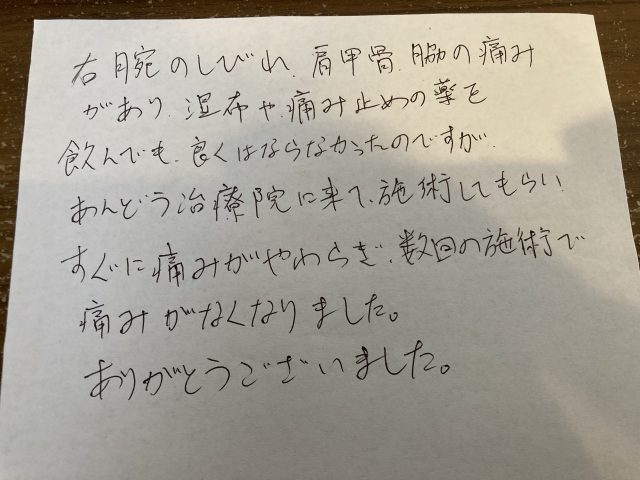 右腕のしびれ、肩甲骨、脇の痛み
があり、湿布や、痛み止めの薬を
飲んでも、良くはならなかったのですが、
あんどう治療院に来て、施術してもらい
すぐに痛みがやわらぎ、数回の施術で
痛みがなくなりました。
ありがとうございました。